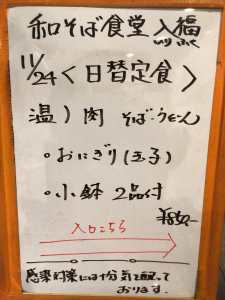 和そば食堂 入福
11/24 < 日替定食 >
温) 肉 そば・うどん
・おにぎり(玉子)
・小鉢 2品付
入口こちら
感染対策には十分気を配って
おります。